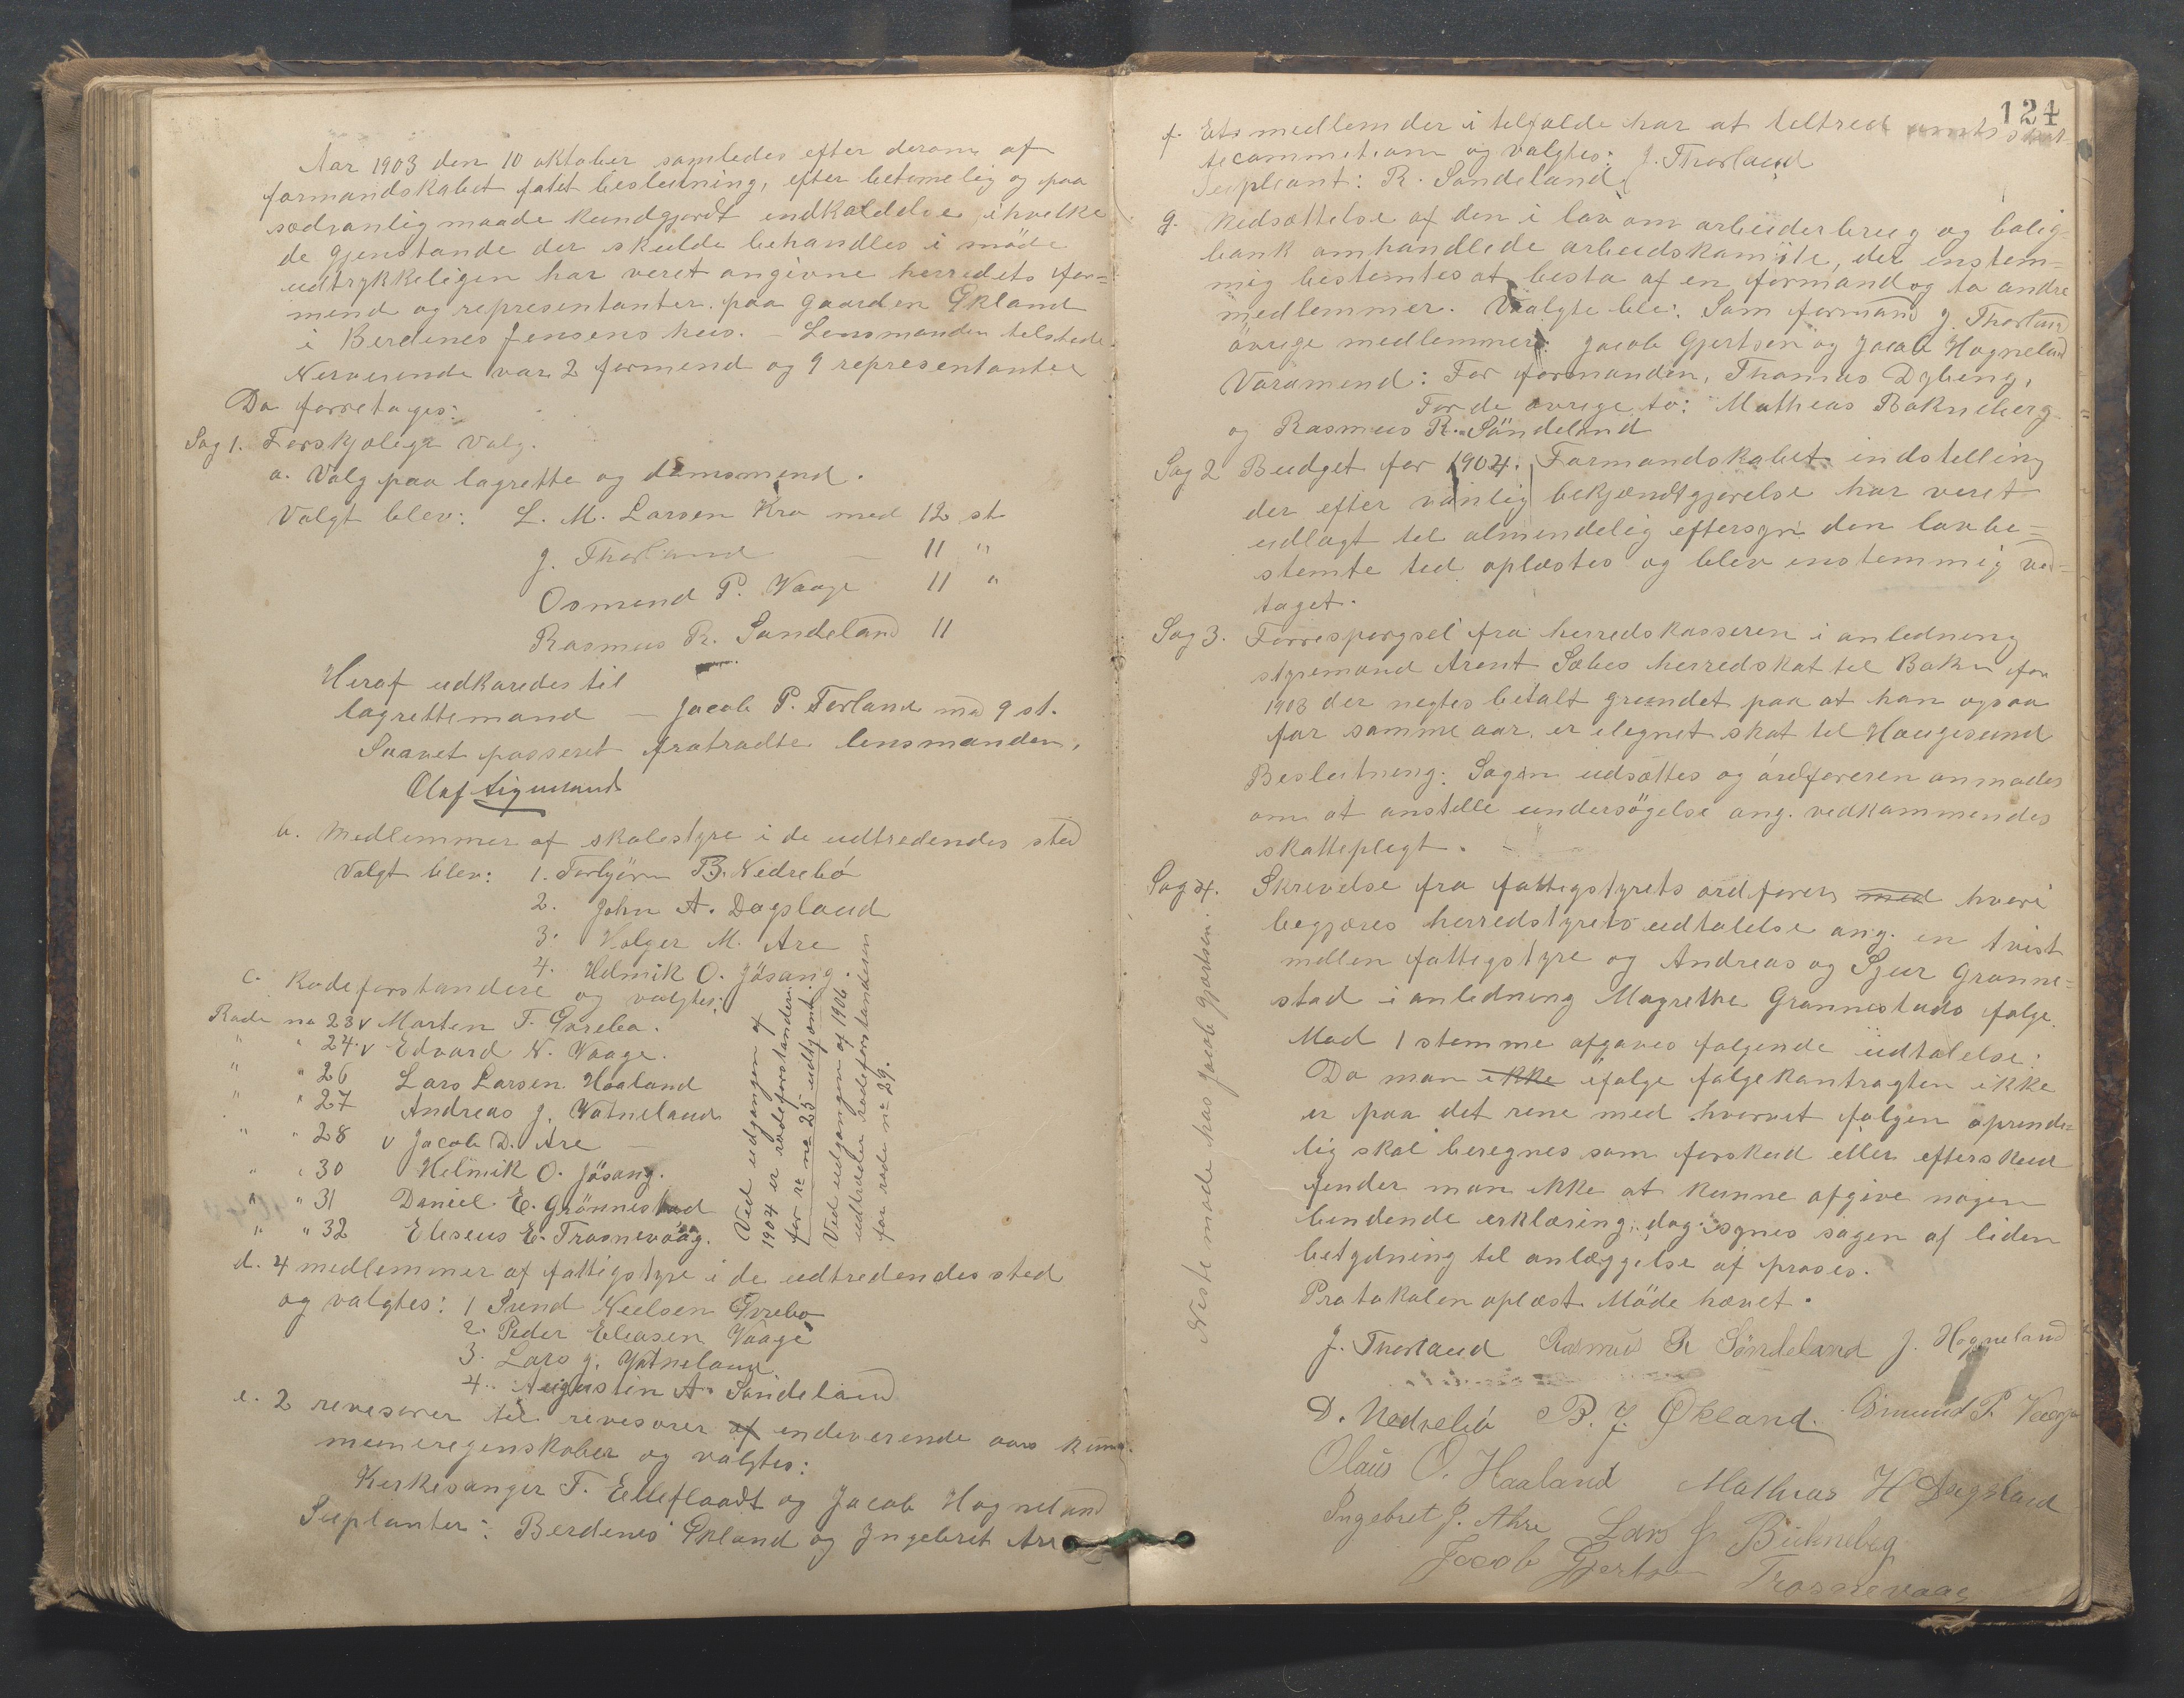 Aar 1903 den 10 oktober samledes efter derom af
formandskabet fatet beslutning, efter betimelig og paa
sædvanlig maade kundgjordt indkaldelse, ihvilke
de gjenstande der skulde behandles i møde
udtrykkeligen har veret angivne herredets for=
mend og representanter paa gaarden Økland
i Berdenes Jensens hus. – Lensmanden tilstede.
Nerverende var 2 formend og 9 representanter
Da forretoges:
Sag 1. Forskjelige Valg.
a. Valg paa lagrette og domsmend.
Valgt blev: L. M. Larsen Kro med 12 st
J. Thorland – 11 "
Osmund P. Vaage 11 "
Rasmus R. Søndeland 11
Heraf udkaredes til
lagrettemand – Jacob P. Torland med 9 st.
Saavet passeret fratradte lensmanden,
Olaf
b. Medlemmer af skolestyre i de udtredendes sted
Valgt blev: 1. Torbjørn B. Nedrebö
2. John A. Dagsland
3. Holger M. Are
4. Helmik O. Jösang.
c. Rodeforstandere og valgtes:
Rode no 23 v Morten T. Gvrebø.
" " 24 v Edvard N. Vaage.
" " 26 Lars Larsen Haaland
" " 27 Andreas J. Vatneland
" " 28 v Jacob D. Are –
" " 30 Helmik O. Jösang.
" " 31 Daniel E. Grönnestad
" " 32 Eliseus E. Trosnevaag.
Ved udgangen af
1904 er rodeforstander
for n: no 25 uddgaaet.
Ved udgangen af 1906
udtreder rodeforstanderen
for rode no 29.
d. 4 medlemmer af fattigstyre i de udtredendes sted
og valgtes: 1 Svend Nielsen Gvrebø
2. Peder Eliasen Vaage
3. Lars J. Vatneland
4. Augustin A. Sündeland
e. 2 revisorer til revisorer af indeverende aars kum=
muneregenskaber og valgtes:
Kirkesanger T. Elleflaadt og Jacob Hogneland
Suplanter: Berdenes Økland og Ingebret Are
124
f. Et medlem der i telfælde har at teltred amts skat-
tecommetion og valgtes: J. Thorland
Supleant: R. Sondeland
g. Nedsættelse af den i lov om arbeiderbrug og bolig=
bank omhandlede arbeidskomite, der enstem=
mig bestemtes at besta af en formand og to andre
medlemmer. Valgte ble: Som formand J. Thorland
övrige medlemmer: Jacob Gjertsen og Jacob Hogneland
Varamend: For formanden, Thomas Dybing,
For de øvrige to: Mathias Bokneberg
og Rasmus R. Söndeland
Sag 2 Budget for 1904. Formandskabets indstilling
der efter vanlig bekjendtgjørelse har veret
udlagt til almendelig eftersyn den lovbe=
stemte tid oplæstes og blev enstemmig ved=
taget.
Sag 3. Forrespørgsel fra herredskassøren i anledning
styremand Arent Sæbøs herredskat til Bokn for
1903 der negtes betalt grundet paa at han ogsaa
for samme aar, er elegnet skat til Haugesund
Beslutning: Sagen udsættes og ordføreren anmodes
om at anstelle undersögelse ang. vedkommendes
skatteplegt. –
Sag 4. Skrivelse fra fattigstyrets ordfører med hvori
begjæres herredstyrets udtalelse ang. en tvist
mellem fattigstyre og Andreas og Sjur Grønne=
stad i anledning Magrethe Grønnestads følge.
Mod 1 stemme afgaves følgende udtalelse:
Da man ikke ifølge følgekontragten ikke
er paa det rene med hvorvet følgen oprinde=
lig skal beregnes som forskud eller efterskud
finder man ikke at kunne afgive nogen
bindende erklæring, dog synes sagen af liden
betydning til anlæggelse af proses.
Protokolen oplæst. Möde hævet.
Neste mode hos Jacob Gjertsen.
J. Thorland Rasmus R Söndeland J. Hogneland
D. Nedrebö B. J. Økland. Osmund P. Vaage
Olaus O. Haaland Mathias H Dagsland
Ingebret J. Ahre Lars J Bukneberg
Jacob Gjertsen Trosnevaag